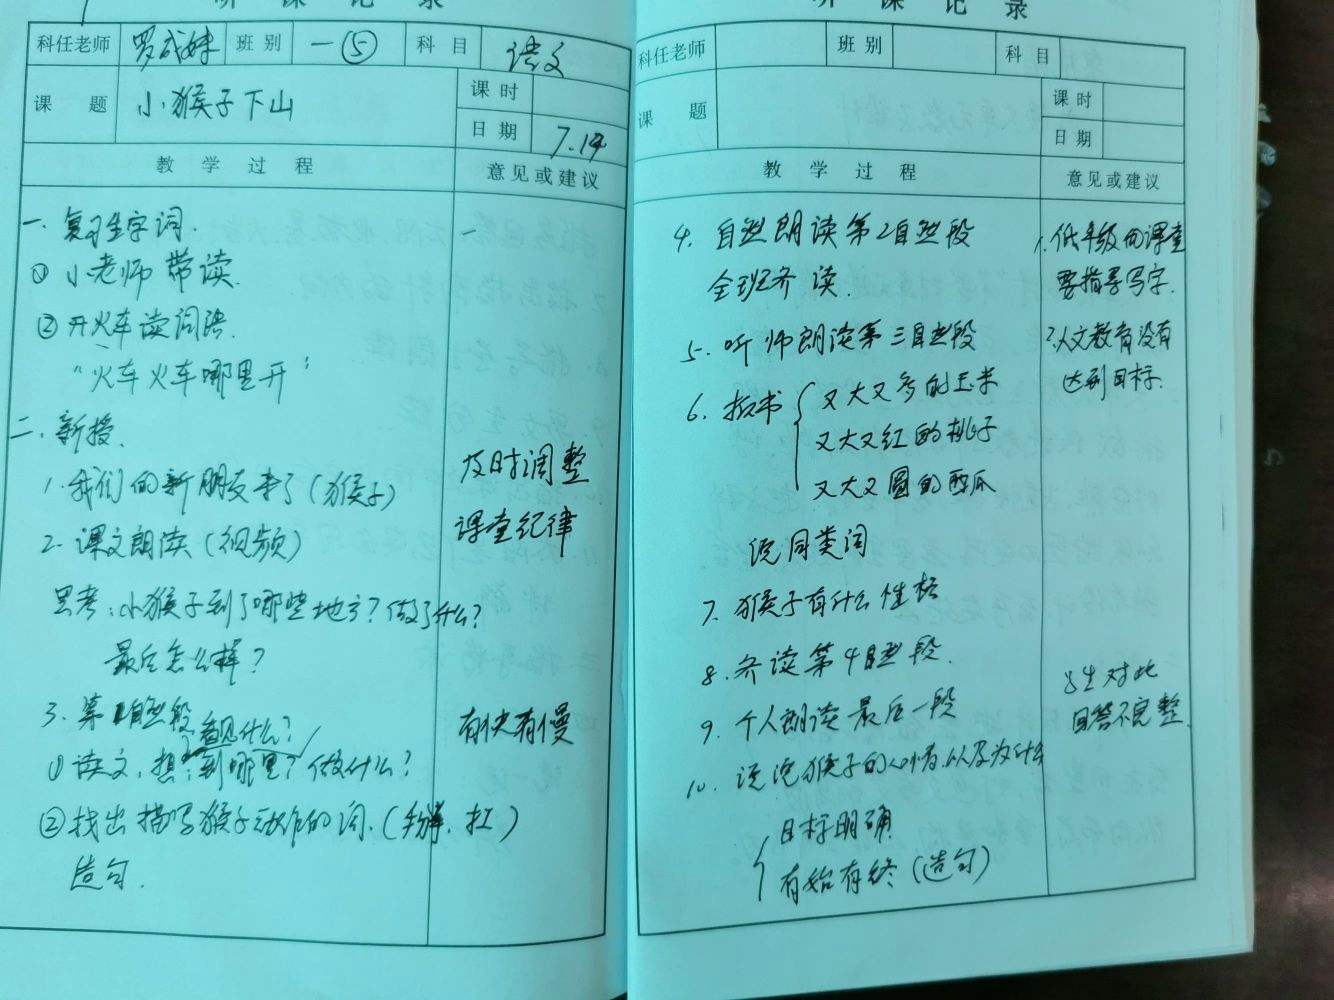 听课记录
科任老师 罗成妹 班别 一⑤ 科目 语文
课题 小猴子下山 课时
日期 7.14
教学过程 意见或建议
一、复习生字词.
① 小老师带读.
② 开火车读词语.
“火车火车哪里开”
二、新授.
1. 我们的新朋友来了(猴子)
及时调整
2. 课文朗读(视频)
课堂纪律
思考:小猴子到了哪些地方?做了什么?
最后怎么样?
3. 第1自然段
看见什么?
有快有慢
① 读文,想:到哪里?做什么?
② 找出描写猴子动作的词.(掰、扛)
造句.
听课记录
科任老师 班别 科目
课题 课时
日期
教学过程 意见或建议
4. 自然朗读第2自然段
全班齐读.
1. 低年级的课堂
要指导写字.
5. 听师朗读第三自然段
2. 人文教育没有
达到目标.
6. 板书 { 又大又多的玉米
又大又红的桃子
又大又圆的西瓜
说同类词
7. 猴子有什么性格
8. 齐读第4自然段.
学生对此
回答不完整.
9. 个人朗读最后一段
10. 说说猴子的心情.以及为什么
{ 目标明确
有始有终(造句)